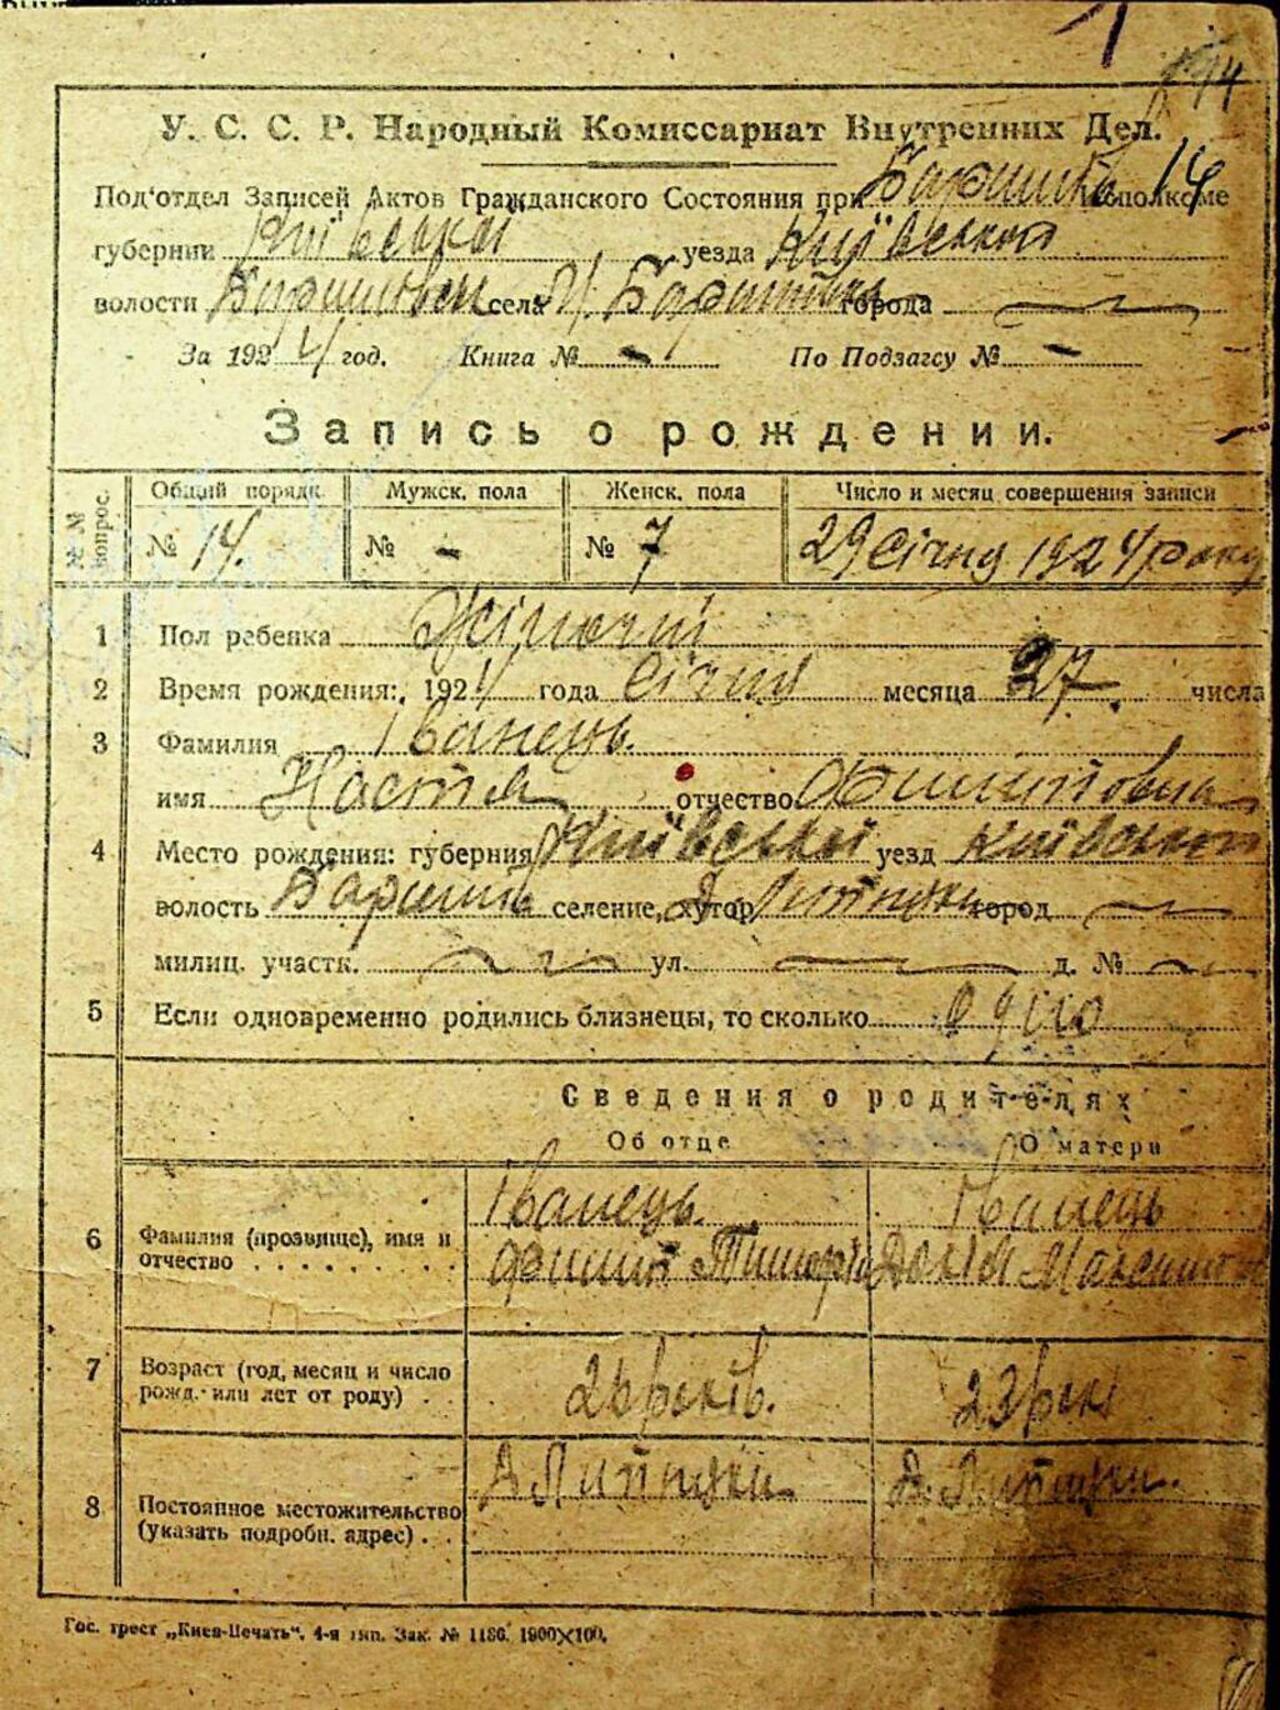 1
У. С. С. Р. Народный Комиссариат Внутренних Дел.
Под'отдел Записей Актов Гражданского Состояния при Баришівь Исполкоме 14
губернии Київської уезда Київського
волости села М. города
За 1924 год. Книга № - По Подзагсу № -
Запись о рождении.
№ № вопрос. Общий порядк. Мужск. пола Женск. пола Число и месяц совершения записи
№ 14. № - № 7 29 Січня 1924 року
1 Пол ребенка Жіночій
2 Время рождения: 1924 года Січня месяца 27 числа
3 Фамилия Іванець.
имя Настя отчество Филиповна
4 Место рождения: губерния Київської уезд Київського
волость Баришів селение, хутор Д. город
милиц. участк. ул. д. №
5 Если одновременно родились близнецы, то сколько одно
Сведения о родителях
Об отце О матери
6 Фамилия (прозвище), имя и Іванець. Іванець
отчество Филип
7 Возраст (год, месяц и число 26 років. 23 рок
рожд. или лет от роду)
8 Постоянное местожительство
(указать подробн. адрес)
Гос. трест „Киев-Печать“. 4-я тип. Зак. № 1186. 1900×100.